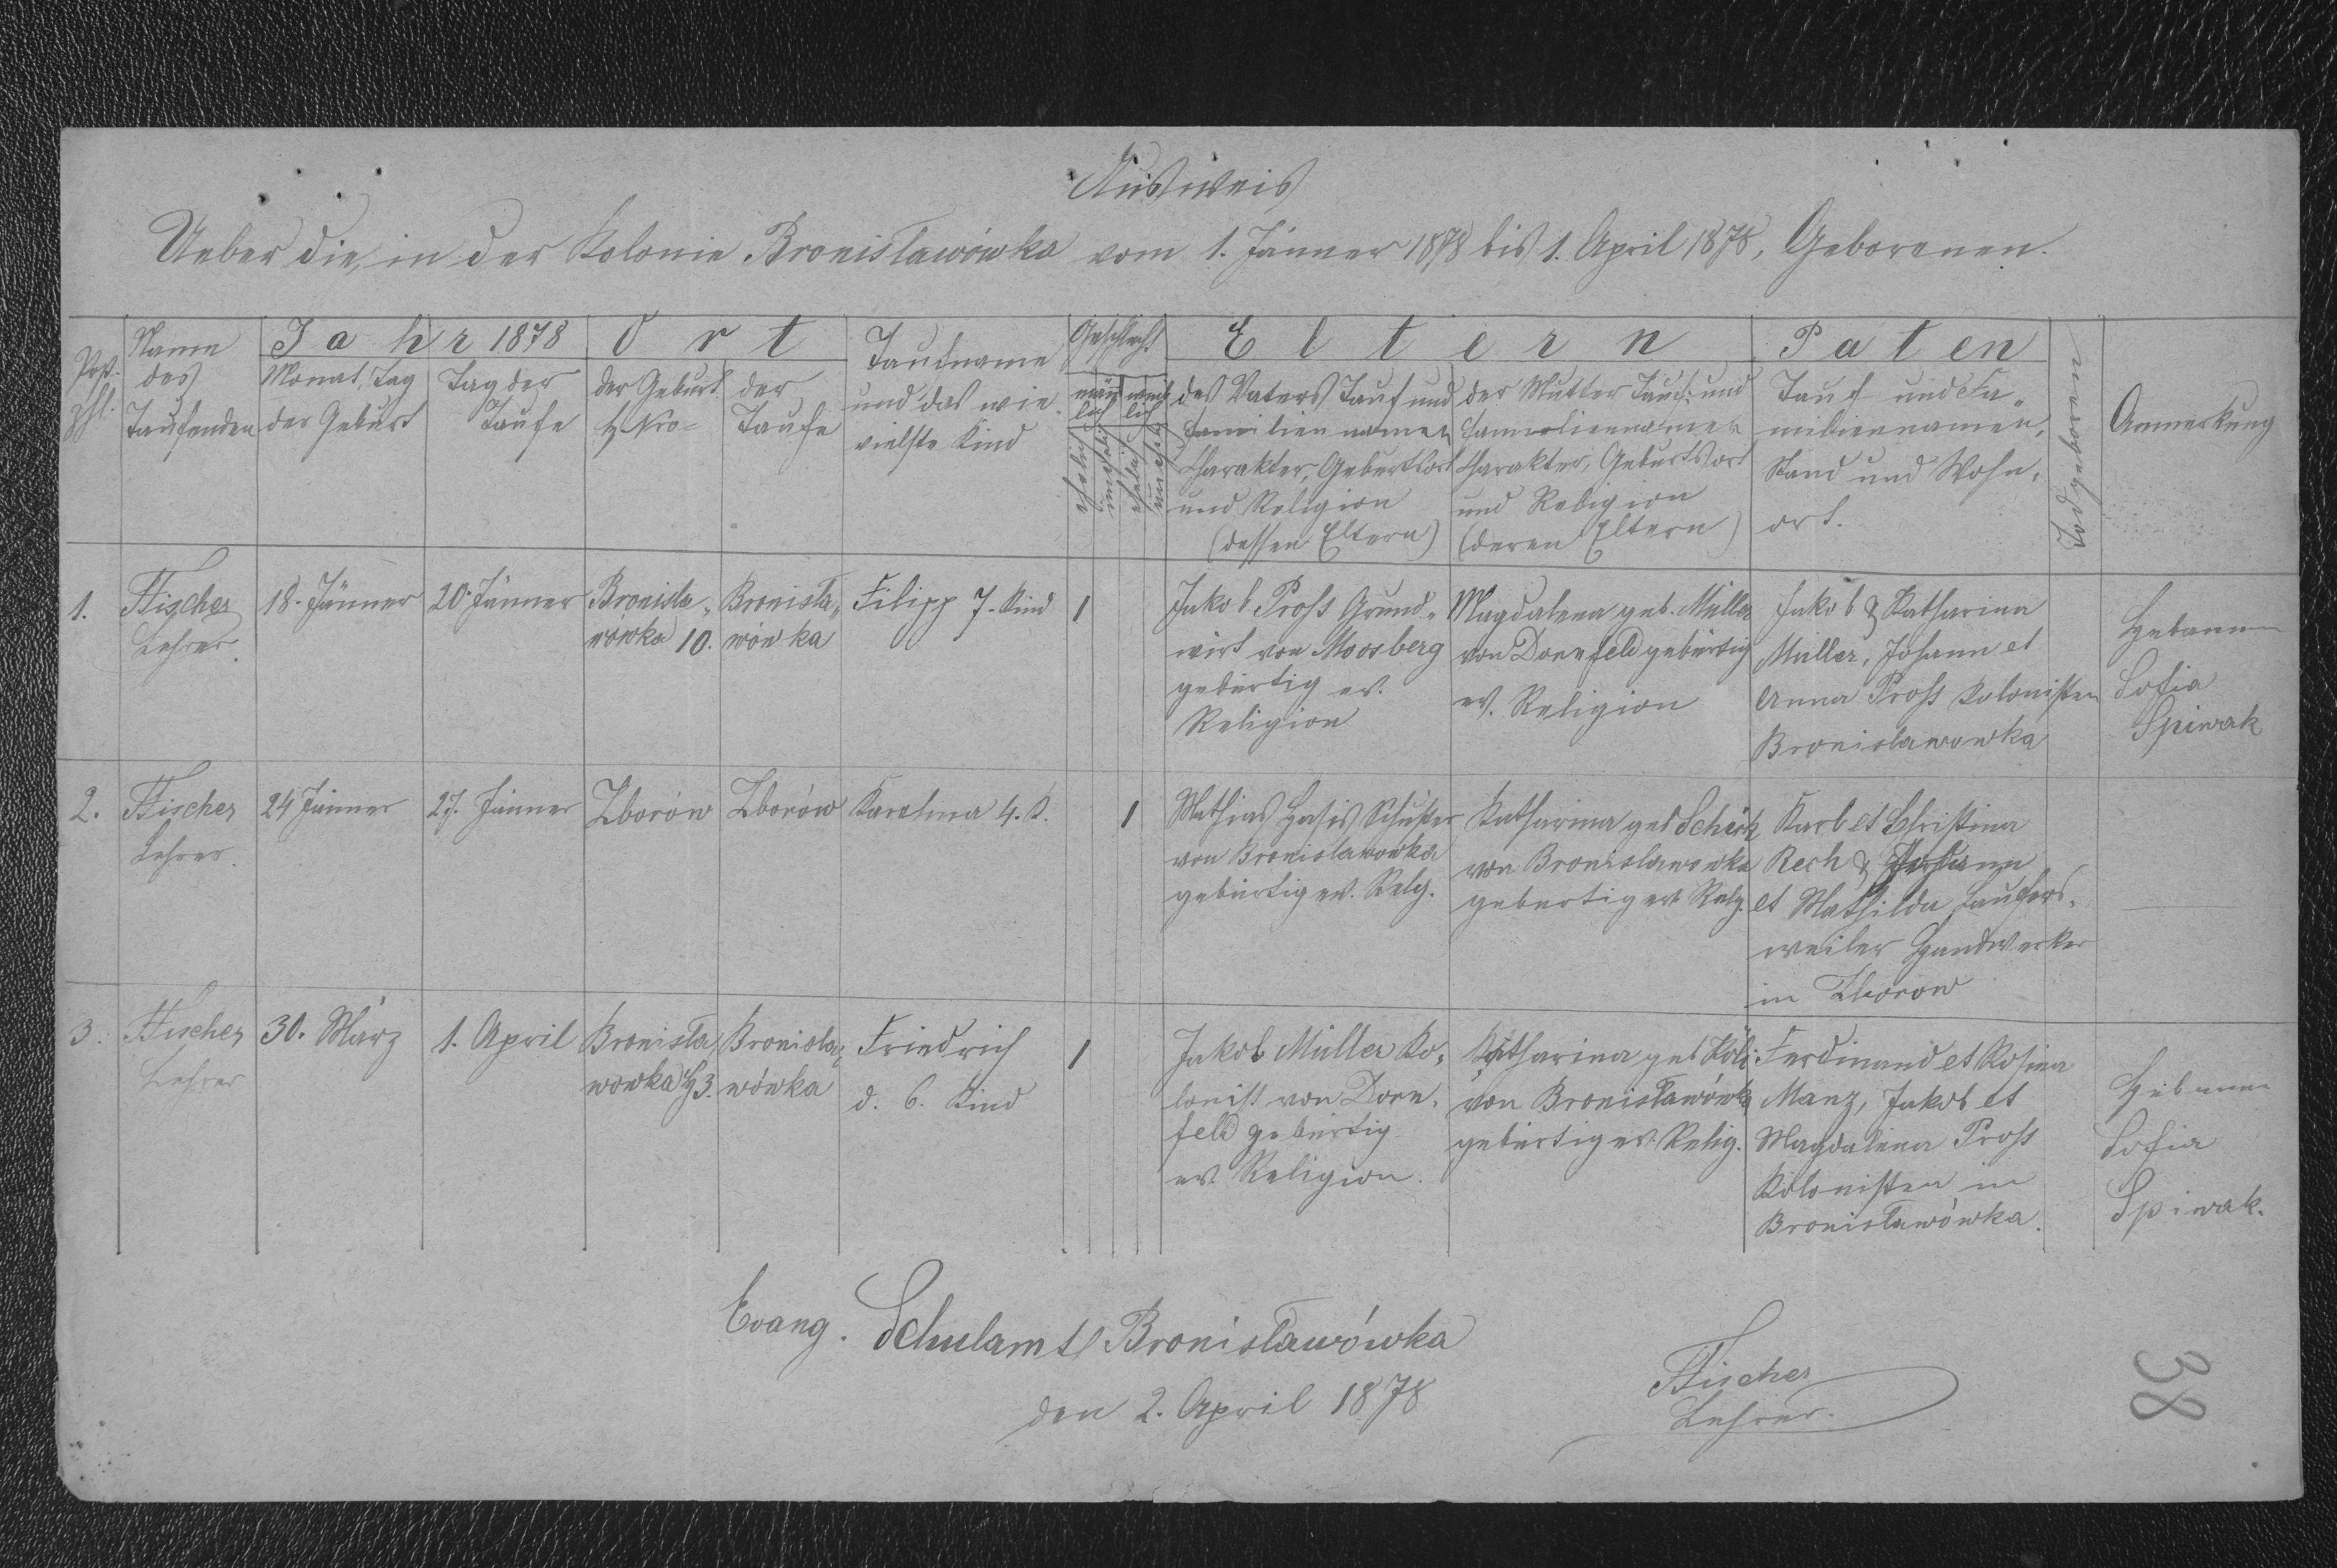 Ausweis
Ueber die, in der Kolonie Bronisławówka vom 1. Jänner 1878 bis 1. April 1878, Geborenen.
Post-
zhl.
Name
des
Taufenden
Jahr 1878
Monat, Tag
der Geburt
Tag der
Taufe
Ort
der Geburt
H Nro
der
Taufe
Taufname
und das wie-
vielste Kind
Geschlecht
männ
lich
weib
lich
ehelich
unehel
ehelich
unehel
Eltern
des Vaters Tauf und
Familiennamen
Charakter, Geburtsort
und Religion
(dessen Eltern)
der Mutter Tauf: und
Familiennamen
Charakter, Geburtsort
und Religion
(deren Eltern)
Paten
Tauf und Fa„
miliennamen,
Stand und Wohn„
ort.
Todtgeboren
Anmerkung
1.
Fischer
Lehrer.
18. Jänner
20. Jänner
Bronisla„
wówka 10.
Bronisła„
wówka
Filipp 7. Kind
1
Jakob Pross Grund„
wirt von Moosberg
gebürtig ev.
Religion
Magdalena geb. Müller
von Dornfeld gebürtig
ev. Religion
Jakob & Katharina
Müller, Johann et
Anna Pross Kolonisten
Bronislawowka
Hebamme
Sofia
Spiwak
2.
Fischer
Lehrer.
24 Jänner
27. Jänner
Zborów
Zborów
Karolina 4. K.
1
Mathias Hasis Schuster
von Bronislawowka
gebürtig ev. Relg.
Katharina geb Schick
von Bronislawowka
gebürtig ev. Relg.
Karl et Christina
Rech & Johann
et Mathilda Laufers„
weiler Handwerker
in Zborow
3.
Fischer
Lehrer
30. März
1. April
Bronisła
wowka H 3.
Bronisla„
wówka
Friedrich
d. 6. Kind
1
Jakob Müller Ko„
lonist von Dorn„
feld gebürtig
ev. Religion.
Katharina geb
von Bronisławówka
gebürtig ev. Relig.
Ferdinand et Rosina
Manz, Jakob et
Magdalena Pross
Kolonisten in
Bronisławówka.
Hebamme
Sofia
Spiwak.
Evang. Schulamt Bronisławówka
den 2. April 1878
Fischer
Lehrer.
38